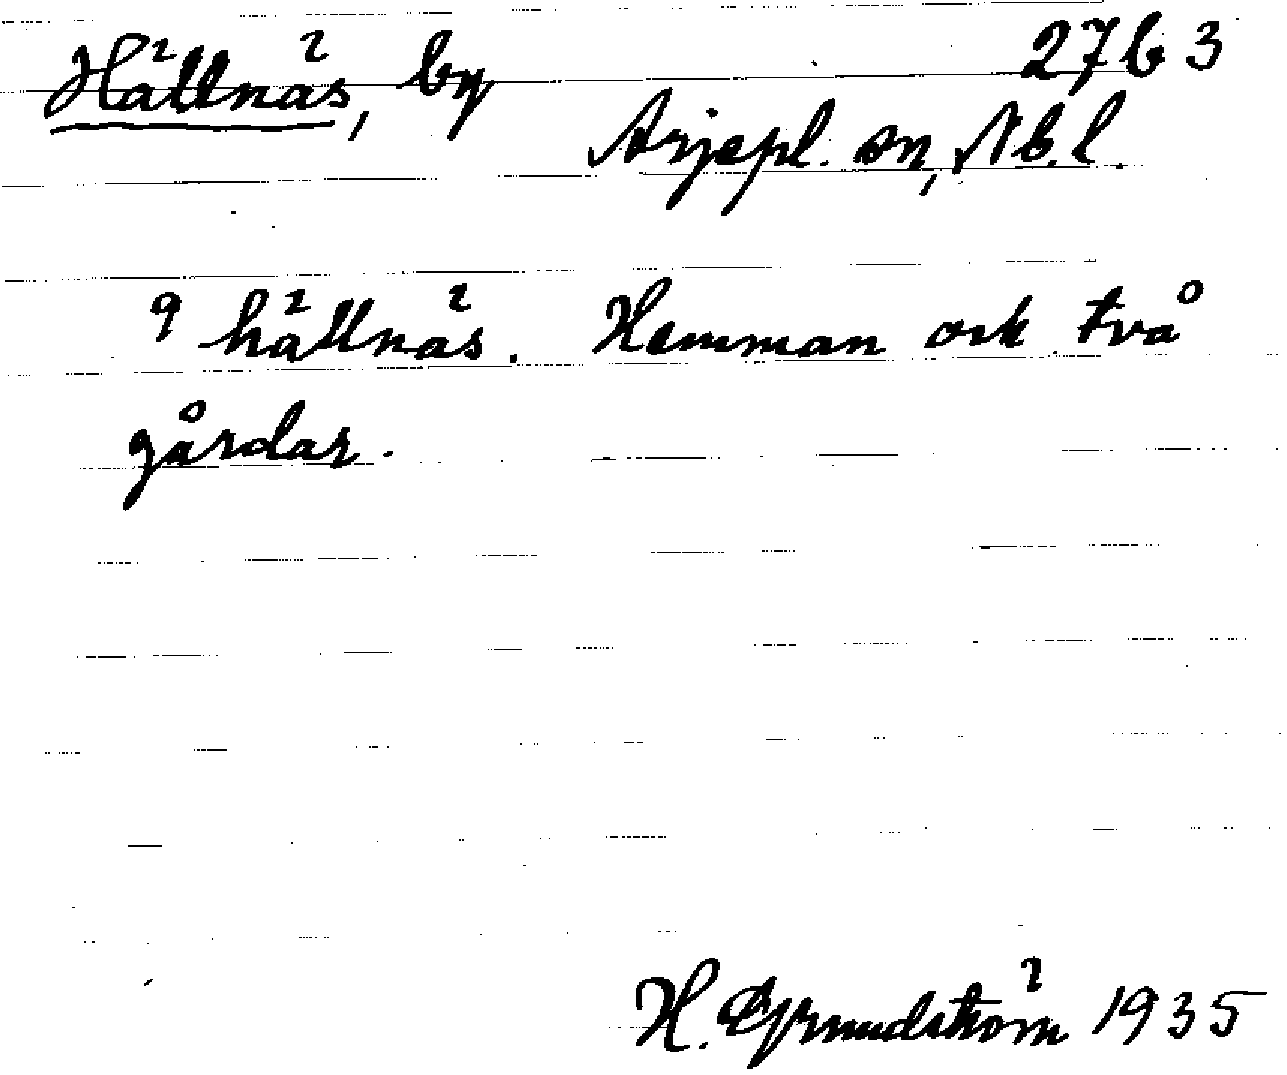 Hällnäs, by 27b3
Arjepl. sn, Nb.l.
9 hällnäs. Hemman ock två
gårdar.
H. Grundström 1935